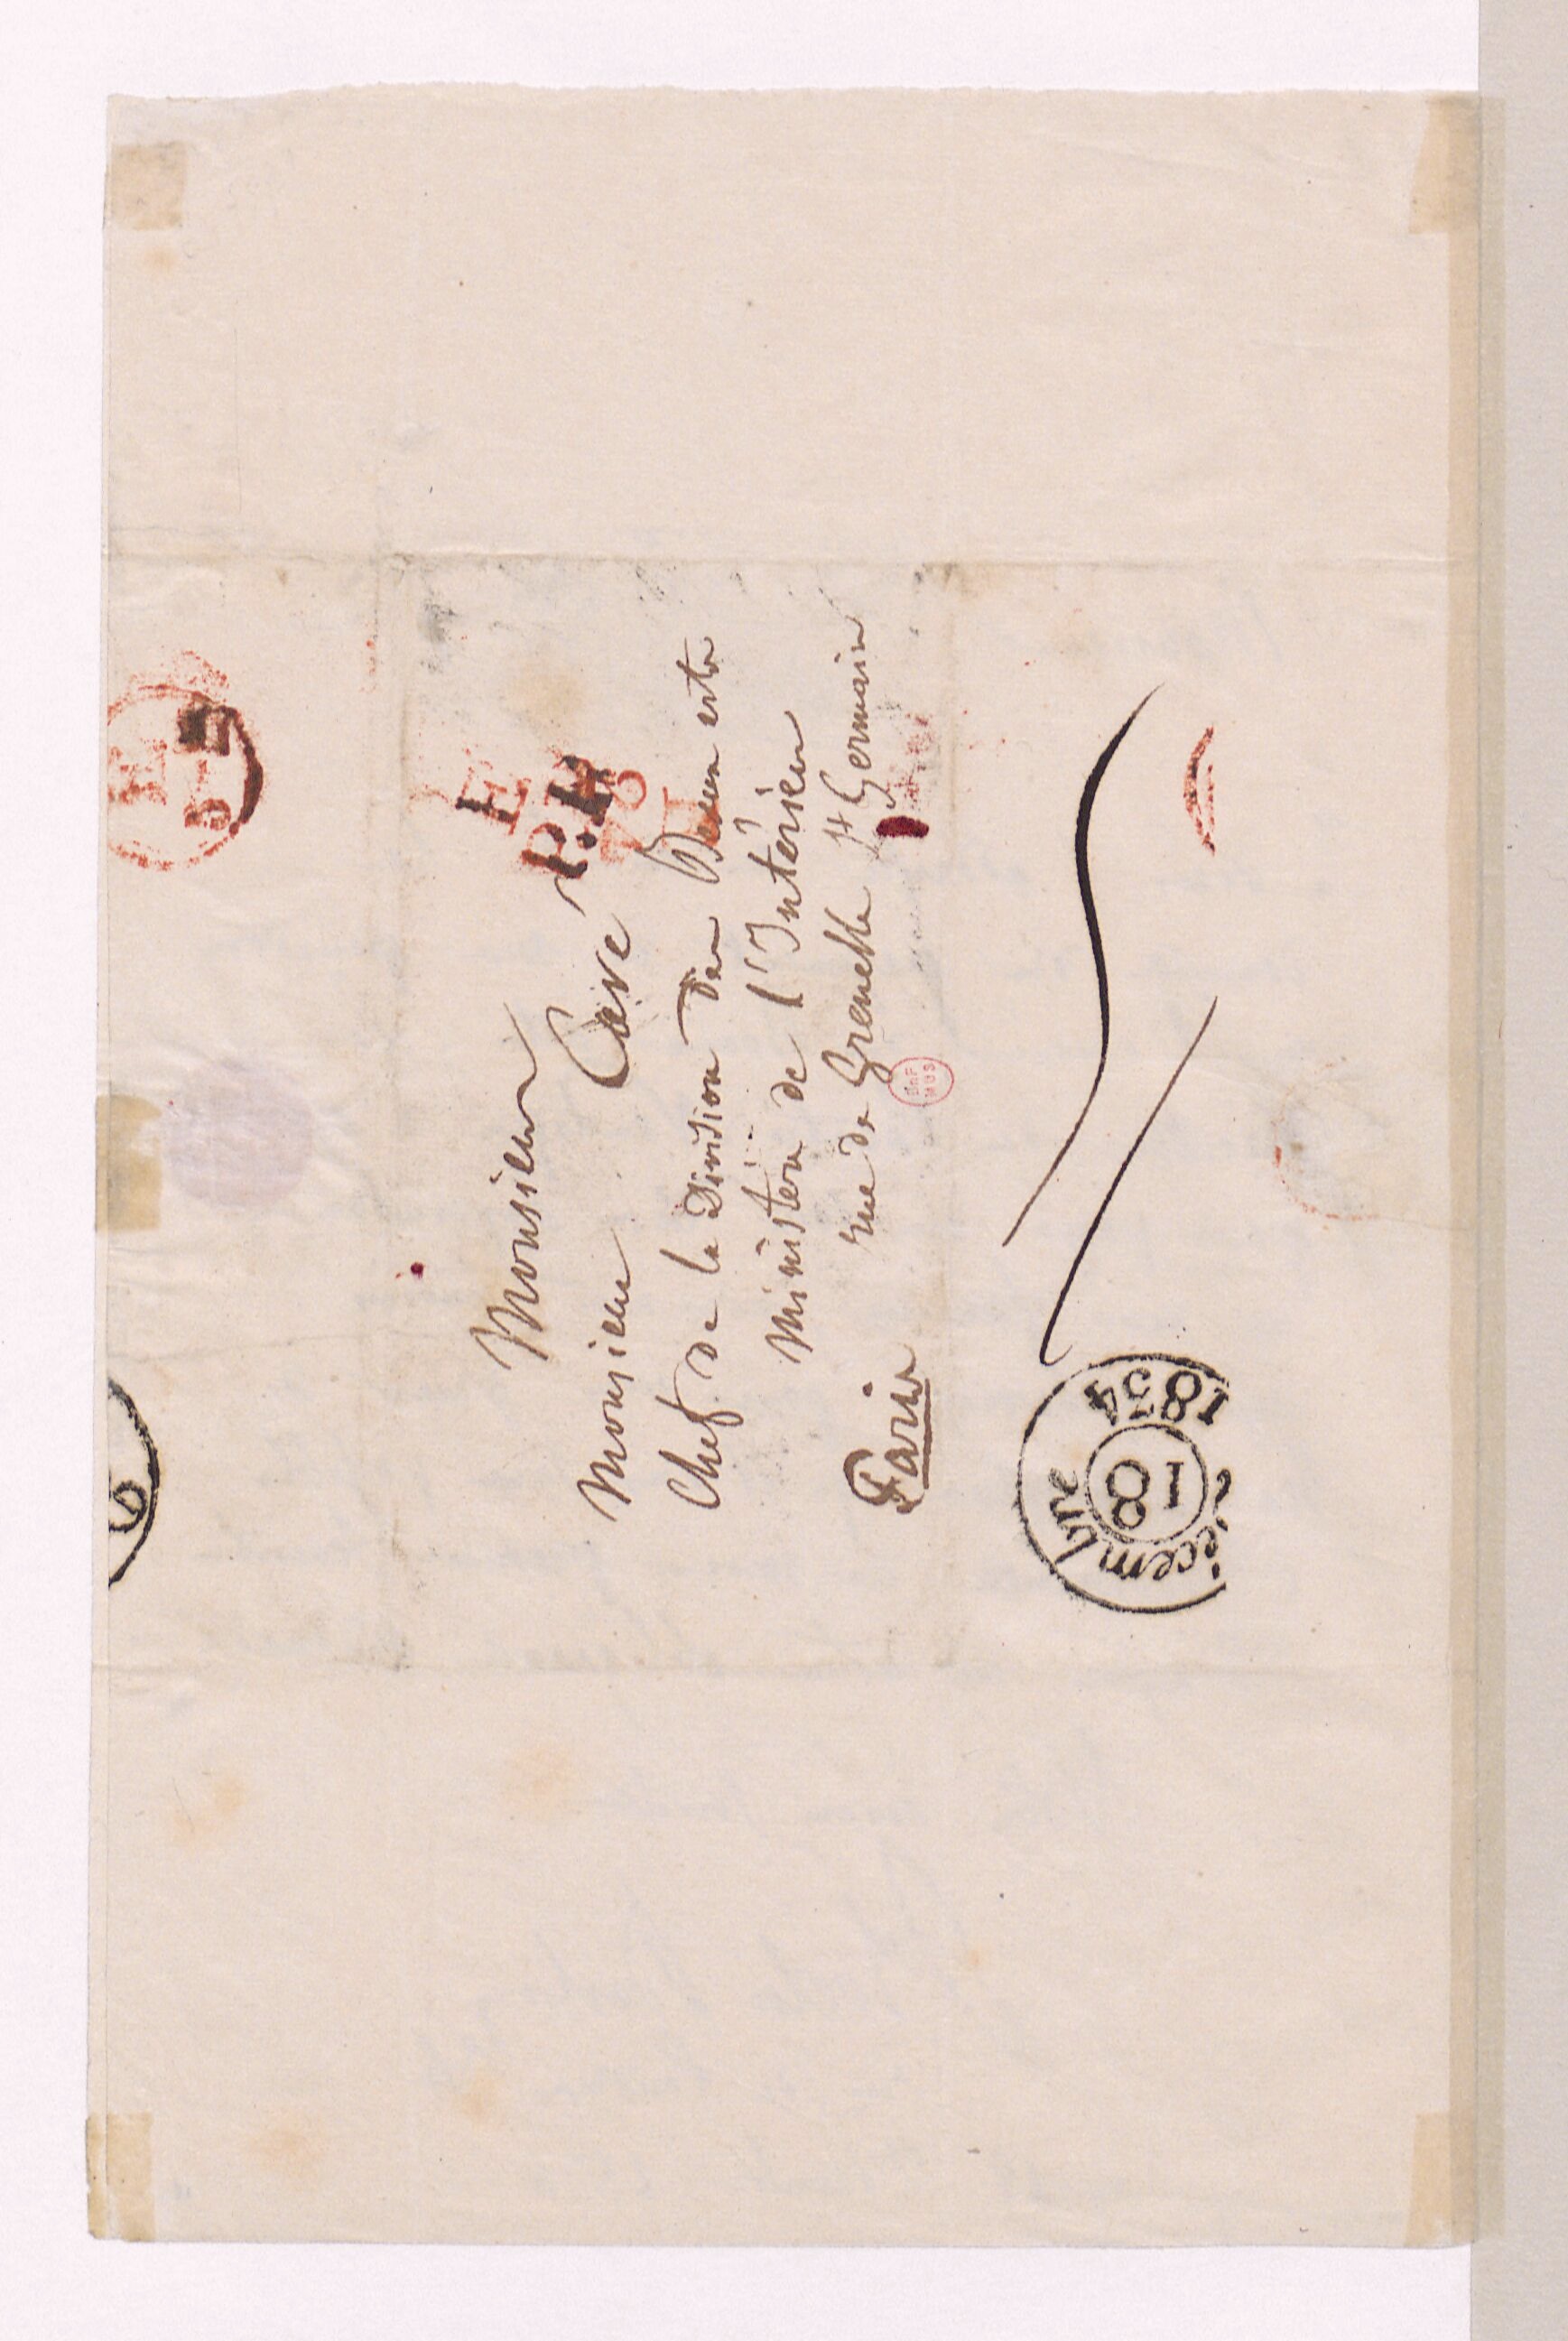 Monsieur
Monsieur Cavé
Chef de la Division des Beaux arts
Ministère de l'Intérieur
rue de Grenelle St Germain
Paris
E
P.P.
BnF
MUS
écembre
18
1834